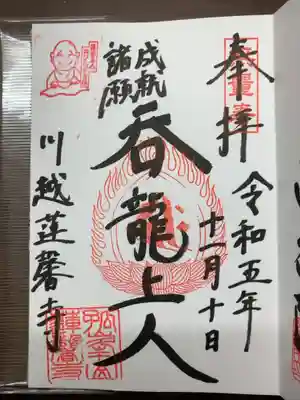 奉拝
令和五年
十一月十日
呑龍上人
諸願
成就
川越蓮馨寺